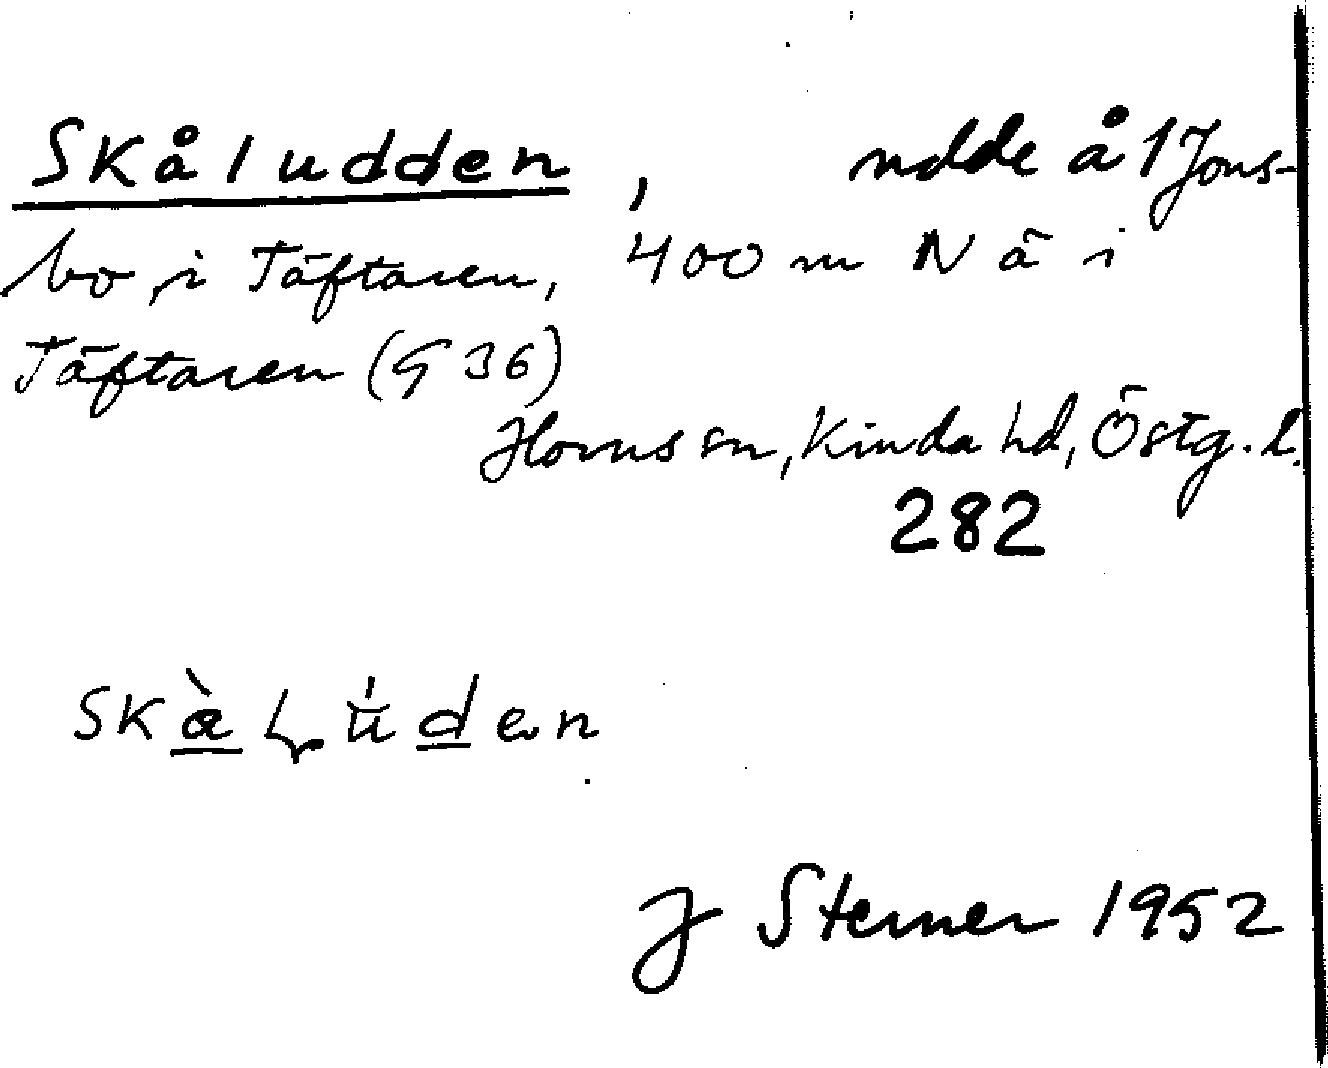 Skåludden, udde å 1 Jons-
bo, i Täftaren, 400 m N ä i
Täftaren (G 36)
Horns sn, Kinda hd, Östg. l.
282
J Sterner 1952